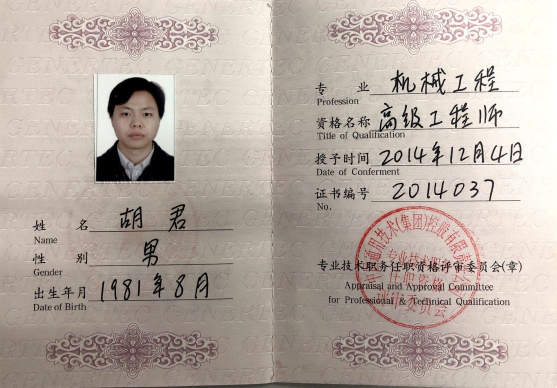 姓 名 胡君
Name
性 别 男
Gender
出生年月 1981年8月
Date of Birth
专 业 机械工程
Profession
资格名称 高级工程师
Title of Qualification
授予时间 2014年12月4日
Date of Conferment
证书编号 2014037
No.
专业技术职务任职资格评审委员会(章)
Appraisal and Approval Committee
for Professional & Technical Qualification
通用技术(集团)控股有限责